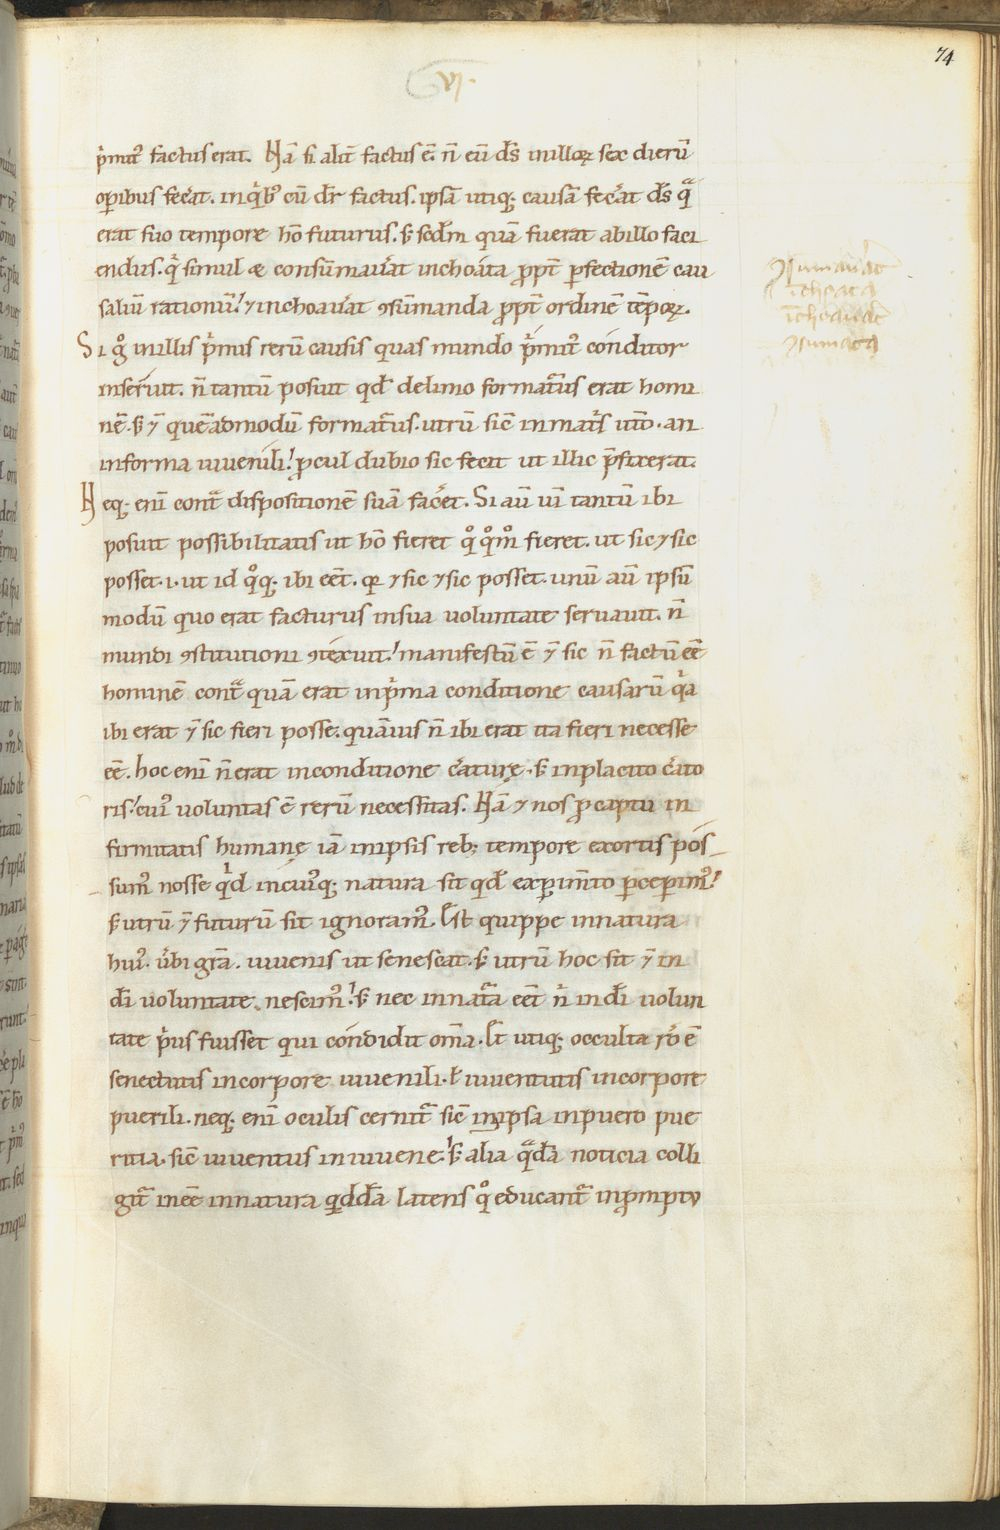 74
VI.
p͛mit᷒ factus erat. Nā si alit̄ factus ē. n̄ eū ds̄ in illoꝝ sex dierū
oꝑibus fec͛at. in qͥbꝰ cū dr̄ factus. ipsā utiqꝫ causā fec͛at ds̄ qᷓ
erat suo tempore hō futurus. ẜ scd̄m quā fuerat ab illo faci
endus. qͥ simul & consūmau͛at inchoata ꝓpt̄ ꝑfectionē cau
saliū rationū! ⁊ inchoau͛at ꝯsūmanda ꝓpt̄ ordinē tēpoꝝ.
Si gͦ in illis pͥmis rerū causis quas mundo pͥmitꝰ conditor
inseruit. n̄ tantū posuit qd̄ de limo formatꝰus erat homi
nē. ẜ ⁊̄ quēadmodū formatꝰus. utrū sic̄ in matͥs ut̄o. an
in forma iuuenili! ꝓcul dubio sic fecit ut illic p̄fixerat.
Neqꝫ enī cont̄ᷓ dispositionē suā fac͛et. Si aū uī tantū ibi
posuit possibilitatis ut hō fieret qͦ qͦmͦ fieret. ut sic ⁊ sic
posset. i. ut id qͦqꝫ ibi eēt. qꝛ ⁊ sic ⁊ sic posset. unū aū ipsū
modū quo erat facturus in sua uoluntate seruauit. n̄
mundi ꝯstitutioni ꝯtexuit! manifestū ē ⁊̄ sic n̄ factū eē
hominē contᷓ quā erat in pͥma conditione causarū qͥa
ibi erat ⁊̄ sic fieri posse. quāuis n̄ ibi erat ita fieri necesse
eē. hoc enī n̄ erat in conditione c͛aturę. ẜ in placito c͛ato
ris! cuiꝰ uoluntas ē rerū necessitas. Nā ⁊ nos ꝓ captu in
firmitatis humanę iā in ipsis rebꝫ tempore exortis pos
sumꝰ nosse qͥd in cuiꝰqꝫ natura sit qd̄ exꝑim̄to ꝑceperimꝰ!
ẜ utrū ⁊̄ futurū sit ignoramꝰ. Est quippe in natura
huiꝰ. u͛bi gr̄a. iuuenis ut senescat. ẜ utrū hoc sit ⁊̄ in
dī uoluntate nescimꝰ! ẜ nec in natᷓa eēt n̄ͥ in dī uolun
tate pͥus fuisset qui condidit om̄a. Et utiqꝫ occulta ro͛ ē
senectutis in corpore iuuenili. ł iuuentutis in corpore
puerili. neqꝫ enī oculis cernitᷓ sic̄ in ipsa in puero pue
ritia. sic̄ iuuentus in iuuene! ẜ alia qᷓdā noticia colli
gitᷓ ineē in natura qͥddā latens qͦ educantᷓ in promptu
ꝯsumauat
īchoata
īchoauat
ꝯsumata